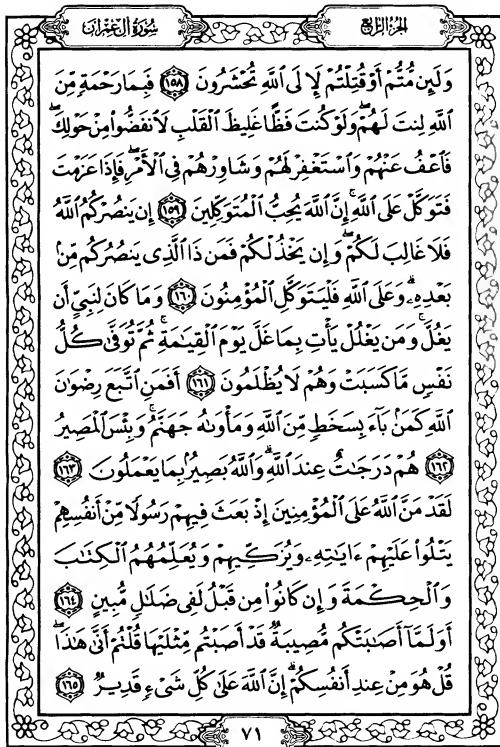 الجزء الرابع
سورة آل عمران
وَلَئِن مُّتُّمْ أَوْ قُتِلْتُمْ لَإِلَى ٱللَّهِ تُحْشَرُونَ ١٥٨ فَبِمَا رَحْمَةٍ مِّنَ
ٱللَّهِ لِنتَ لَهُمْ ۖ وَلَوْ كُنتَ فَظًّا غَلِيظَ ٱلْقَلْبِ لَٱنفَضُّوا۟ مِنْ حَوْلِكَ ۖ
فَٱعْفُ عَنْهُمْ وَٱسْتَغْفِرْ لَهُمْ وَشَاوِرْهُمْ فِى ٱلْأَمْرِ ۖ فَإِذَا عَزَمْتَ
فَتَوَكَّلْ عَلَى ٱللَّهِ ۚ إِنَّ ٱللَّهَ يُحِبُّ ٱلْمُتَوَكِّلِينَ ١٥٩ إِن يَنصُرْكُمُ ٱللَّهُ
فَلَا غَالِبَ لَكُمْ ۖ وَإِن يَخْذُلْكُمْ فَمَن ذَا ٱلَّذِى يَنصُرُكُم مِّنۢ
بَعْدِهِۦ ۗ وَعَلَى ٱللَّهِ فَلْيَتَوَكَّلِ ٱلْمُؤْمِنُونَ ١٦٠ وَمَا كَانَ لِنَبِىٍّ أَن
يَغُلَّ ۚ وَمَن يَغْلُلْ يَأْتِ بِمَا غَلَّ يَوْمَ ٱلْقِيَٰمَةِ ۚ ثُمَّ تُوَفَّىٰ كُلُّ
نَفْسٍ مَّا كَسَبَتْ وَهُمْ لَا يُظْلَمُونَ ١٦١ أَفَمَنِ ٱتَّبَعَ رِضْوَٰنَ
ٱللَّهِ كَمَنۢ بَآءَ بِسَخَطٍ مِّنَ ٱللَّهِ وَمَأْوَىٰهُ جَهَنَّمُ ۚ وَبِئْسَ ٱلْمَصِيرُ
١٦٢ هُمْ دَرَجَٰتٌ عِندَ ٱللَّهِ ۗ وَٱللَّهُ بَصِيرٌۢ بِمَا يَعْمَلُونَ ١٦٣
لَقَدْ مَنَّ ٱللَّهُ عَلَى ٱلْمُؤْمِنِينَ إِذْ بَعَثَ فِيهِمْ رَسُولًا مِّنْ أَنفُسِهِمْ
يَتْلُوا۟ عَلَيْهِمْ ءَايَٰتِهِۦ وَيُزَكِّيهِمْ وَيُعَلِّمُهُمُ ٱلْكِتَٰبَ
وَٱلْحِكْمَةَ وَإِن كَانُوا۟ مِن قَبْلُ لَفِى ضَلَٰلٍ مُّبِينٍ ١٦٤
أَوَلَمَّآ أَصَٰبَتْكُم مُّصِيبَةٌ قَدْ أَصَبْتُم مِّثْلَيْهَا قُلْتُمْ أَنَّىٰ هَٰذَا ۖ
قُلْ هُوَ مِنْ عِندِ أَنفُسِكُمْ ۗ إِنَّ ٱللَّهَ عَلَىٰ كُلِّ شَىْءٍ قَدِيرٌ ١٦٥
٧١